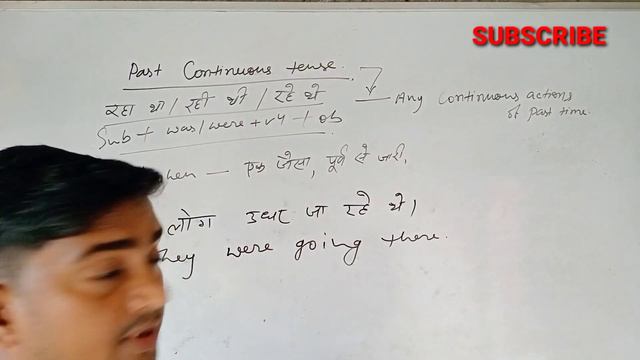 SUBSCRIBE
Past Continuous tense.
रहा था / रही थी / रहे थे — Any continuous actions
of Past time.
Sub + was/were + v4 + ob
hen — एक जैसा, पूर्व से जारी,
लोग उधर जा रहे थे।
hey were going there.